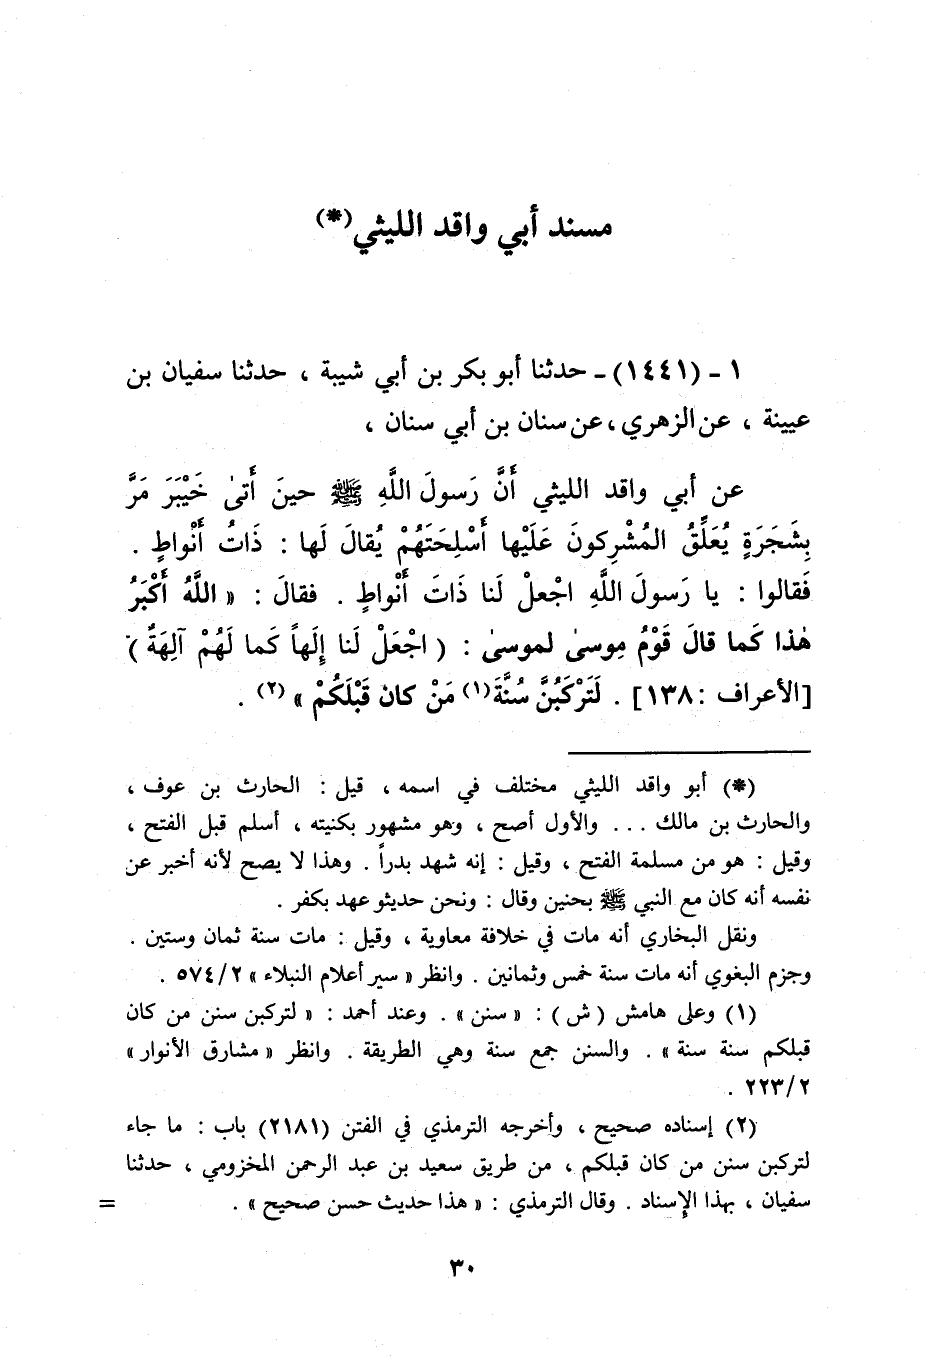 مسند أبي واقد الليثي(*)
١ - (١٤٤١) - حدثنا أبو بكر بن أبي شيبة ، حدثنا سفيان بن
عيينة ، عن الزهري، عن سنان بن أبي سنان ،
عن أبي واقد الليثي أَنَّ رَسولَ اللَّهِ ﷺ حينَ أَتىٰ خَيْبَرَ مَرَّ
بِشَجَرَةٍ يُعَلِّقُ المُشْرِكونَ عَلَيْها أَسْلِحَتَهُمْ يُقالَ لَها : ذَاتُ أَنْواطٍ .
فَقالوا : يا رَسولَ اللَّهِ اجْعلْ لَنا ذَاتَ أَنْواطٍ . فقالَ : « اللَّهُ أَكْبَرُ
هٰذا كَما قالَ قَوْمُ مِوسىٰ لموسىٰ : ( اجْعَلْ لَنا إِلَهاً كَما لَهُمْ آلِهَةٌ )
[الأعراف :١٣٨] . لَتَرْكَبُنَّ سُنَّةَ(١) مَنْ كان قَبْلَكُمْ » (٢) .
(*) أبو واقد الليثي مختلف في اسمه ، قيل : الحارث بن عوف ،
والحارث بن مالك ... والأول أصح ، وهو مشهور بكنيته ، أسلم قبل الفتح ،
وقيل : هو من مسلمة الفتح ، وقيل : إنه شهد بدراً . وهذا لا يصح لأنه أخبر عن
نفسه أنه كان مع النبي ﷺ بحنين وقال : ونحن حديثو عهد بكفر .
ونقل البخاري أنه مات في خلافة معاوية ، وقيل : مات سنة ثمان وستين .
وجزم البغوي أنه مات سنة خمس وثمانين . وانظر « سير أعلام النبلاء » ٥٧٤/٢ .
(١) وعلى هامش ( ش ) : « سنن » . وعند أحمد : « لتركبن سنن من كان
قبلكم سنة سنة » . والسنن جمع سنة وهي الطريقة . وانظر « مشارق الأنوار »
٢٢٣/٢ .
(٢) إسناده صحيح ، وأخرجه الترمذي في الفتن (٢١٨١) باب : ما جاء
لتركبن سنن من كان قبلكم ، من طريق سعيد بن عبد الرحمن المخزومي ، حدثنا
سفيان ، بهذا الإسناد . وقال الترمذي : « هذا حديث حسن صحيح » . =
٣٠